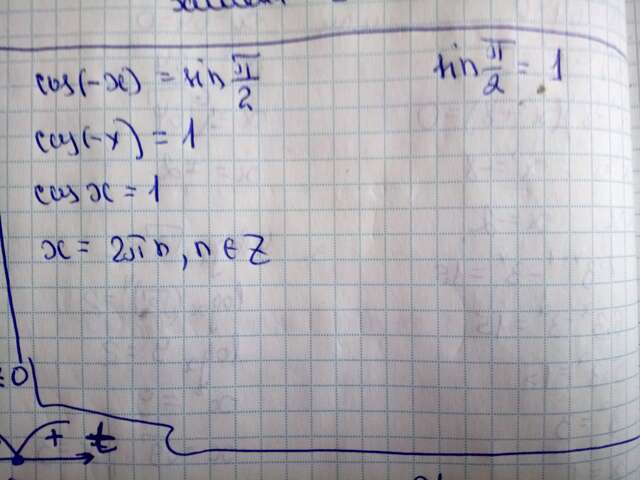 cos(-x) = sin π/2
sin π/2 = 1
cos(-x) = 1
cos x = 1
x = 2πn, n ∈ Z
0
+ t